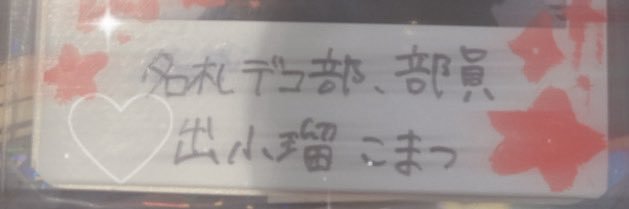 名札デコ部、部員
出小瑠こまつ